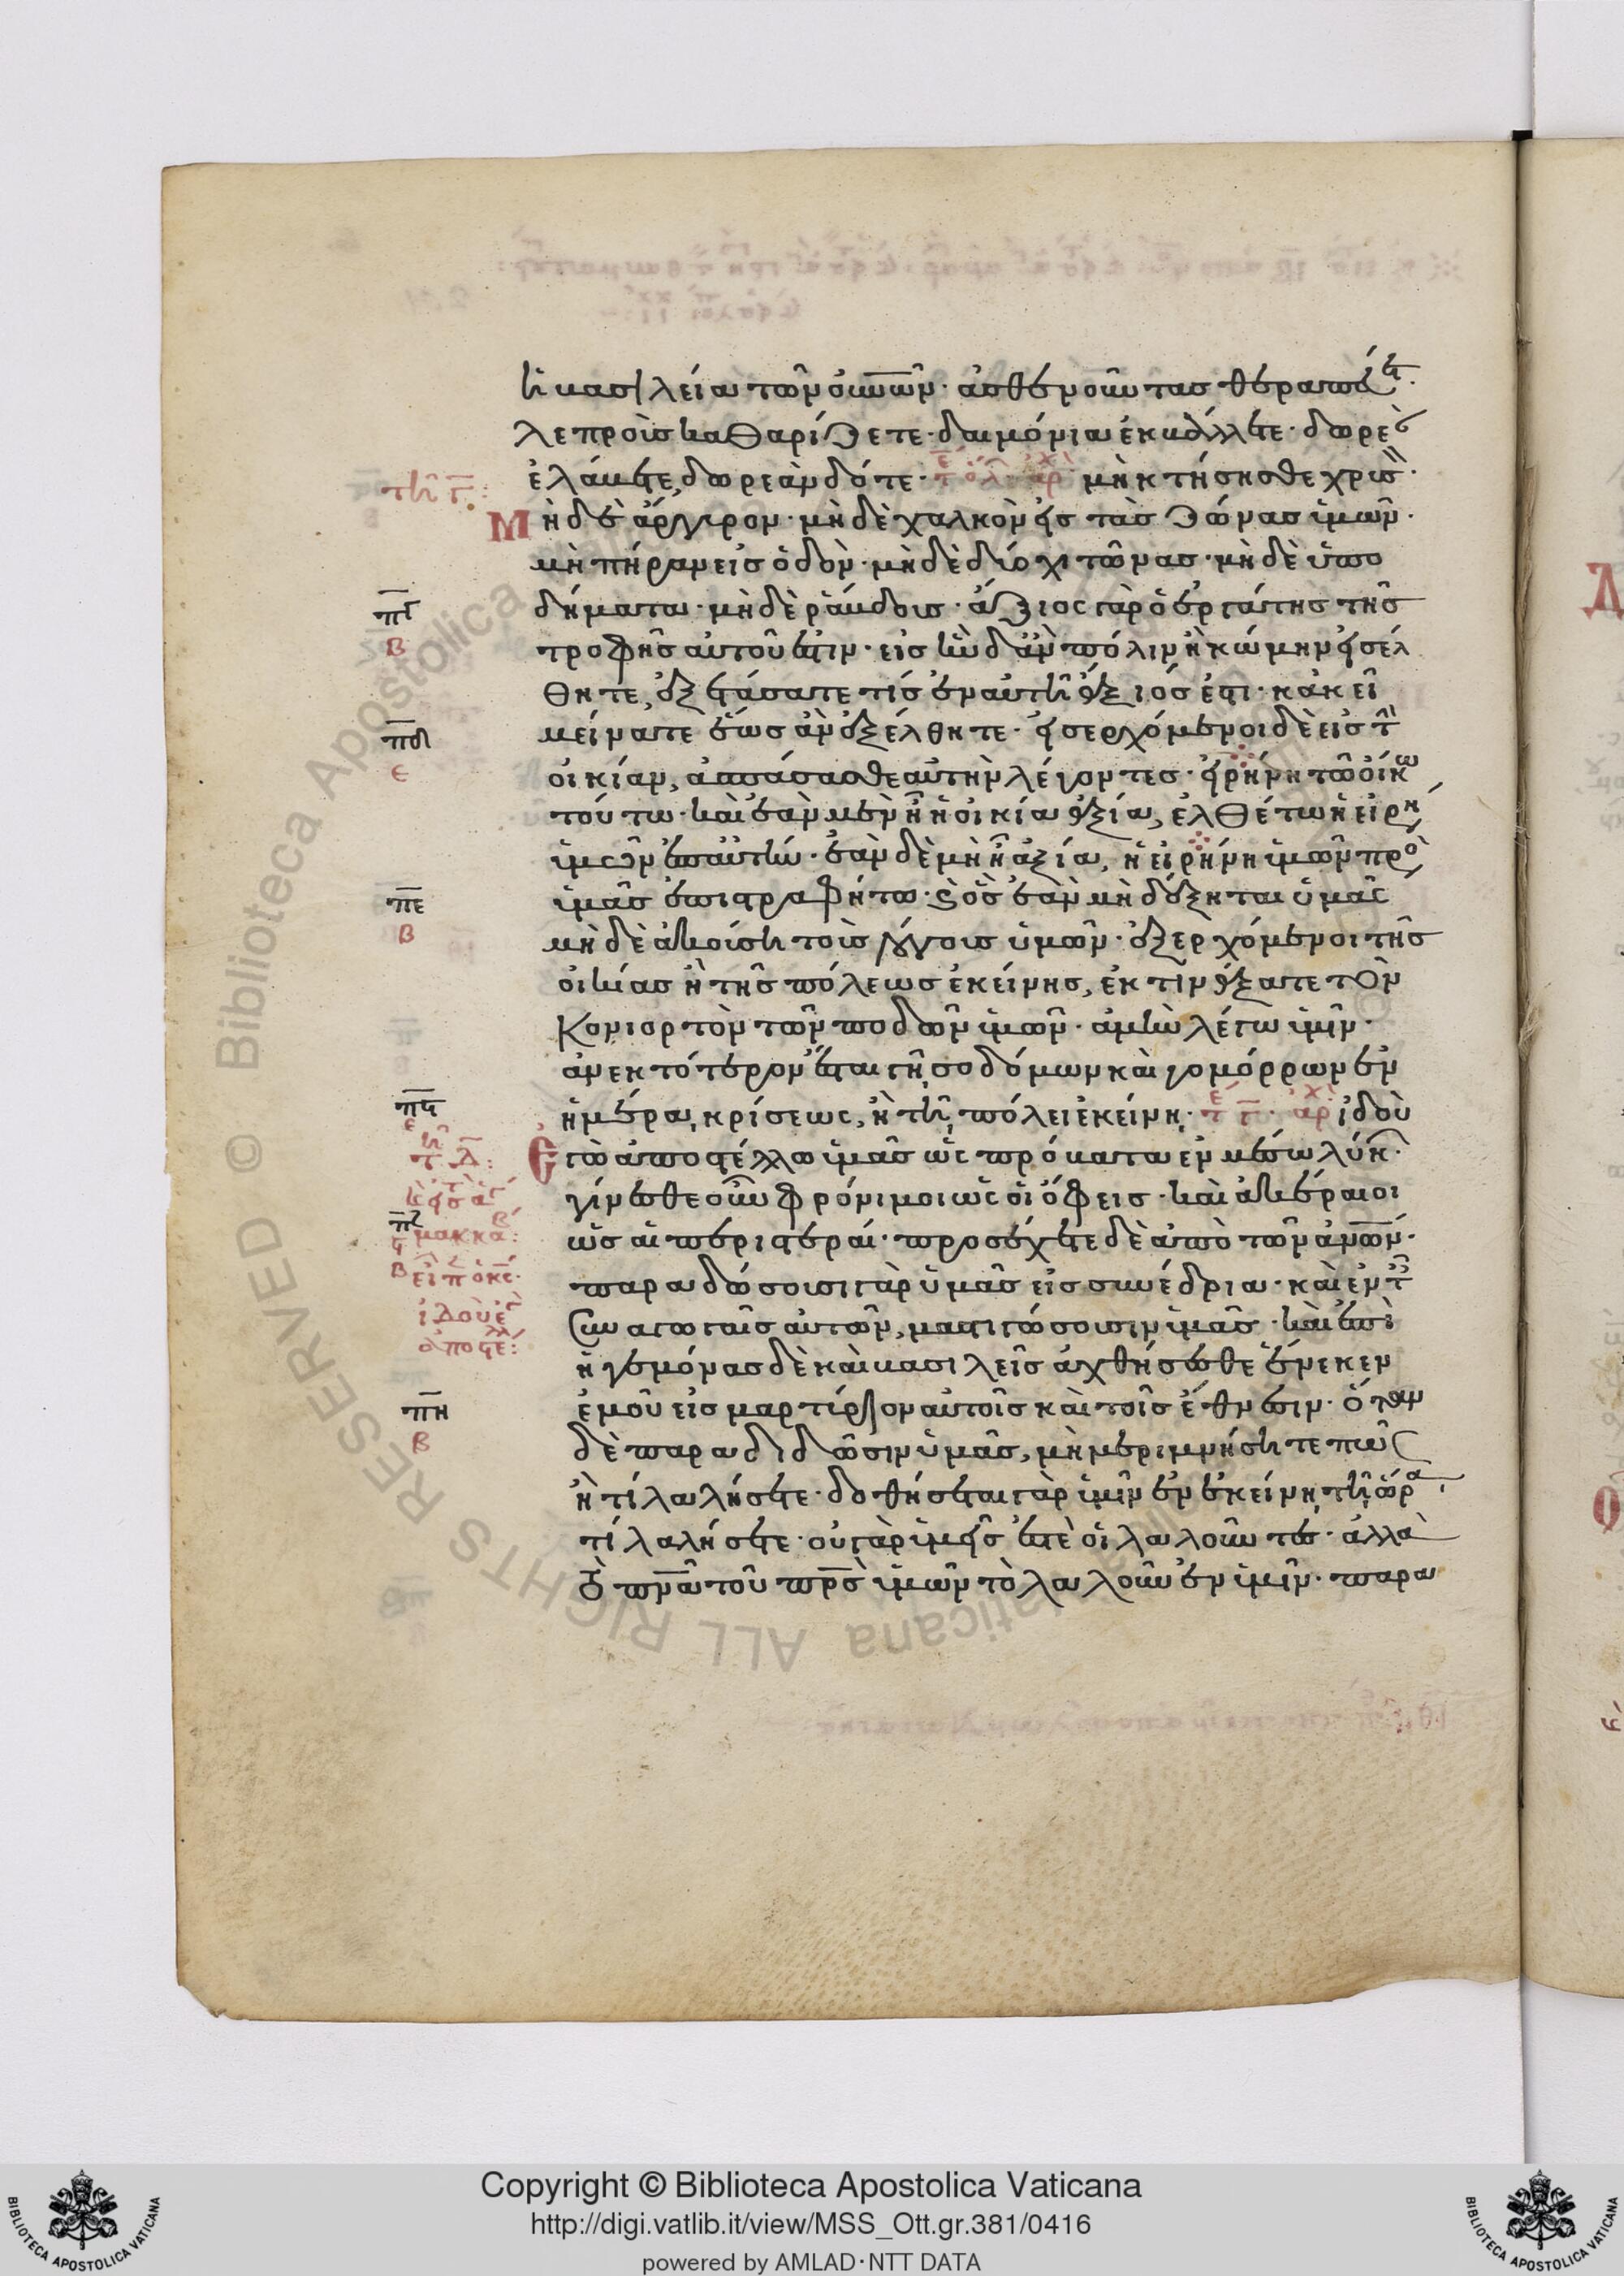 ἡ βασιλεία τῶν οὐνῶν· ἀσθενοῦντας θεραπεύετ·
λεπροὺς καθαρίζετε· δαιμόνια ἐκβάλλετε· δωρεὰ
ἐλάβετε, δωρεὰν δότε· μὴ κτήσησθε χρυσὸν·
Μηδὲ ἄργυρον· μὴ δὲ χαλκὸν εἰς τὰς ζώνας ὑμῶν·
μὴ πήραν εἰς ὁδὸν· μὴ δὲ δύο χιτῶνας· μὴ δὲ ὑπο
δήματα· μὴ δὲ ῥάβδους· ἄξιος γὰρ ὁ ἐργάτης τῆς
τροφῆς αὐτοῦ ἐστιν· εἰς ἣν δ' ἂν πόλιν ἢ κώμην εἰσέλ
θητε, ἐξετάσατε τίς ἐν αὐτῆ ἄξιός ἐστι· κἀκεῖ
μείνατε ἕως ἂν ἐξέλθητε· εἰσερχόμενοι δὲ εἰς τὴν
οἰκίαν, ἀσπάσασθε αὐτὴν λέγοντες· εἰρήνη τῶ οἴκω
τούτω· καὶ ἐὰν μὲν ἦ ἡ οἰκία ἀξία, ἐλθέτω ἡ εἰρή
ὑμῶν ἐπ' αὐτήν· ἐὰν δὲ μὴ ἦ ἀξία, ἡ εἰρήνη ὑμῶν πρὸ
ὑμᾶς ἐπιστραφήτω· καὶ ὃς ἐὰν μὴ δέξηται ὑμᾶς
μὴ δὲ ἀκούση τοὺς λόγους ὑμῶν· ἐξερχόμενοι τῆς
οἰκίας ἢ τῆς πόλεως ἐκείνης, ἐκτινάξατε τὸν
κονιορτὸν τῶν ποδῶν ὑμῶν· ἀμὴν λέγω ὑμῖν·
ἀνεκτότερον ἔσται γῆ σοδόμων καὶ γομόρρων ἐν
ἡμέρα κρίσεως, ἢ τῆ πόλει ἐκείνη· ἰδοὺ
Ἐγὼ ἀποστέλλω ὑμᾶς ὡς πρόβατα ἐν μέσω λύκ·
γίνεσθε οὖν φρόνιμοι ὡς οἱ ὄφεις· καὶ ἀκέραιοι
ὡς αἱ περιστεραί· προσέχετε δὲ ἀπὸ τῶν ἀνῶν·
παραδώσουσι γὰρ ὑμᾶς εἰς συνέδρια· καὶ ἐν τ
συναγωγαῖς αὐτῶν, μαστιγώσουσιν ὑμᾶς· καὶ ἐπὶ
ἡγεμόνας δὲ καὶ βασιλεῖς ἀχθήσεσθε ἕνεκεν
ἐμοῦ εἰς μαρτύριον αὐτοῖς καὶ τοῖς ἔθνεσιν· ὅταν
δὲ παραδιδῶσιν ὑμᾶς, μὴ μεριμνήσητε πῶς
ἢ τί λαλήσετε· δοθήσεται γὰρ ὑμῖν ἐν ἐκείνη τῆ ὥρα
τί λαλήσετε· οὐ γὰρ ὑμεῖς ἐστὲ οἱ λαλοῦντες· ἀλλὰ
τὸ πνᾶ τοῦ πρς ὑμῶν τὸ λαλοῦν ἐν ὑμῖν· παρα
πγ
β
πδ
ε
πε
β
πϛ
πζ
πη
β
Copyright © Biblioteca Apostolica Vaticana
http://digi.vatlib.it/view/MSS_Ott.gr.381/0416
powered by AMLAD·NTT DATA